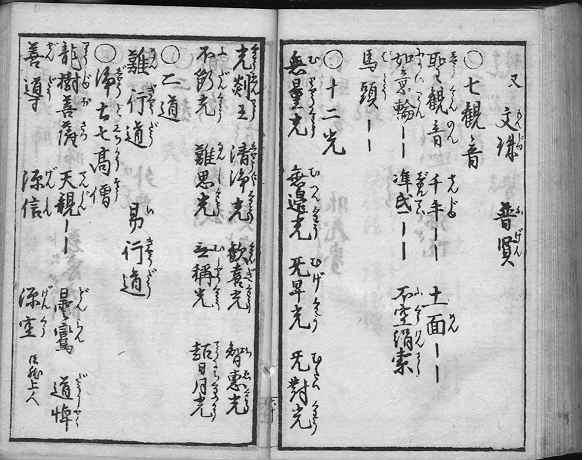 又 文殊 普賢
〇七観音
聖観音 千手〡〡 十一面〡〡
如意輪〡〡 准胝〡〡 不空絹索
馬頭〡〡
〇十二光
無量光 無邊光 无碍光 无對光
光炎王 清浄光 歓喜光 智恵光
不断光 難思光 无称光 超日月光
〇二道
難行道 易行道
〇浄土七高僧
龍樹菩薩 天親〡〡 曇鸞 道綽
善導 源信 源空